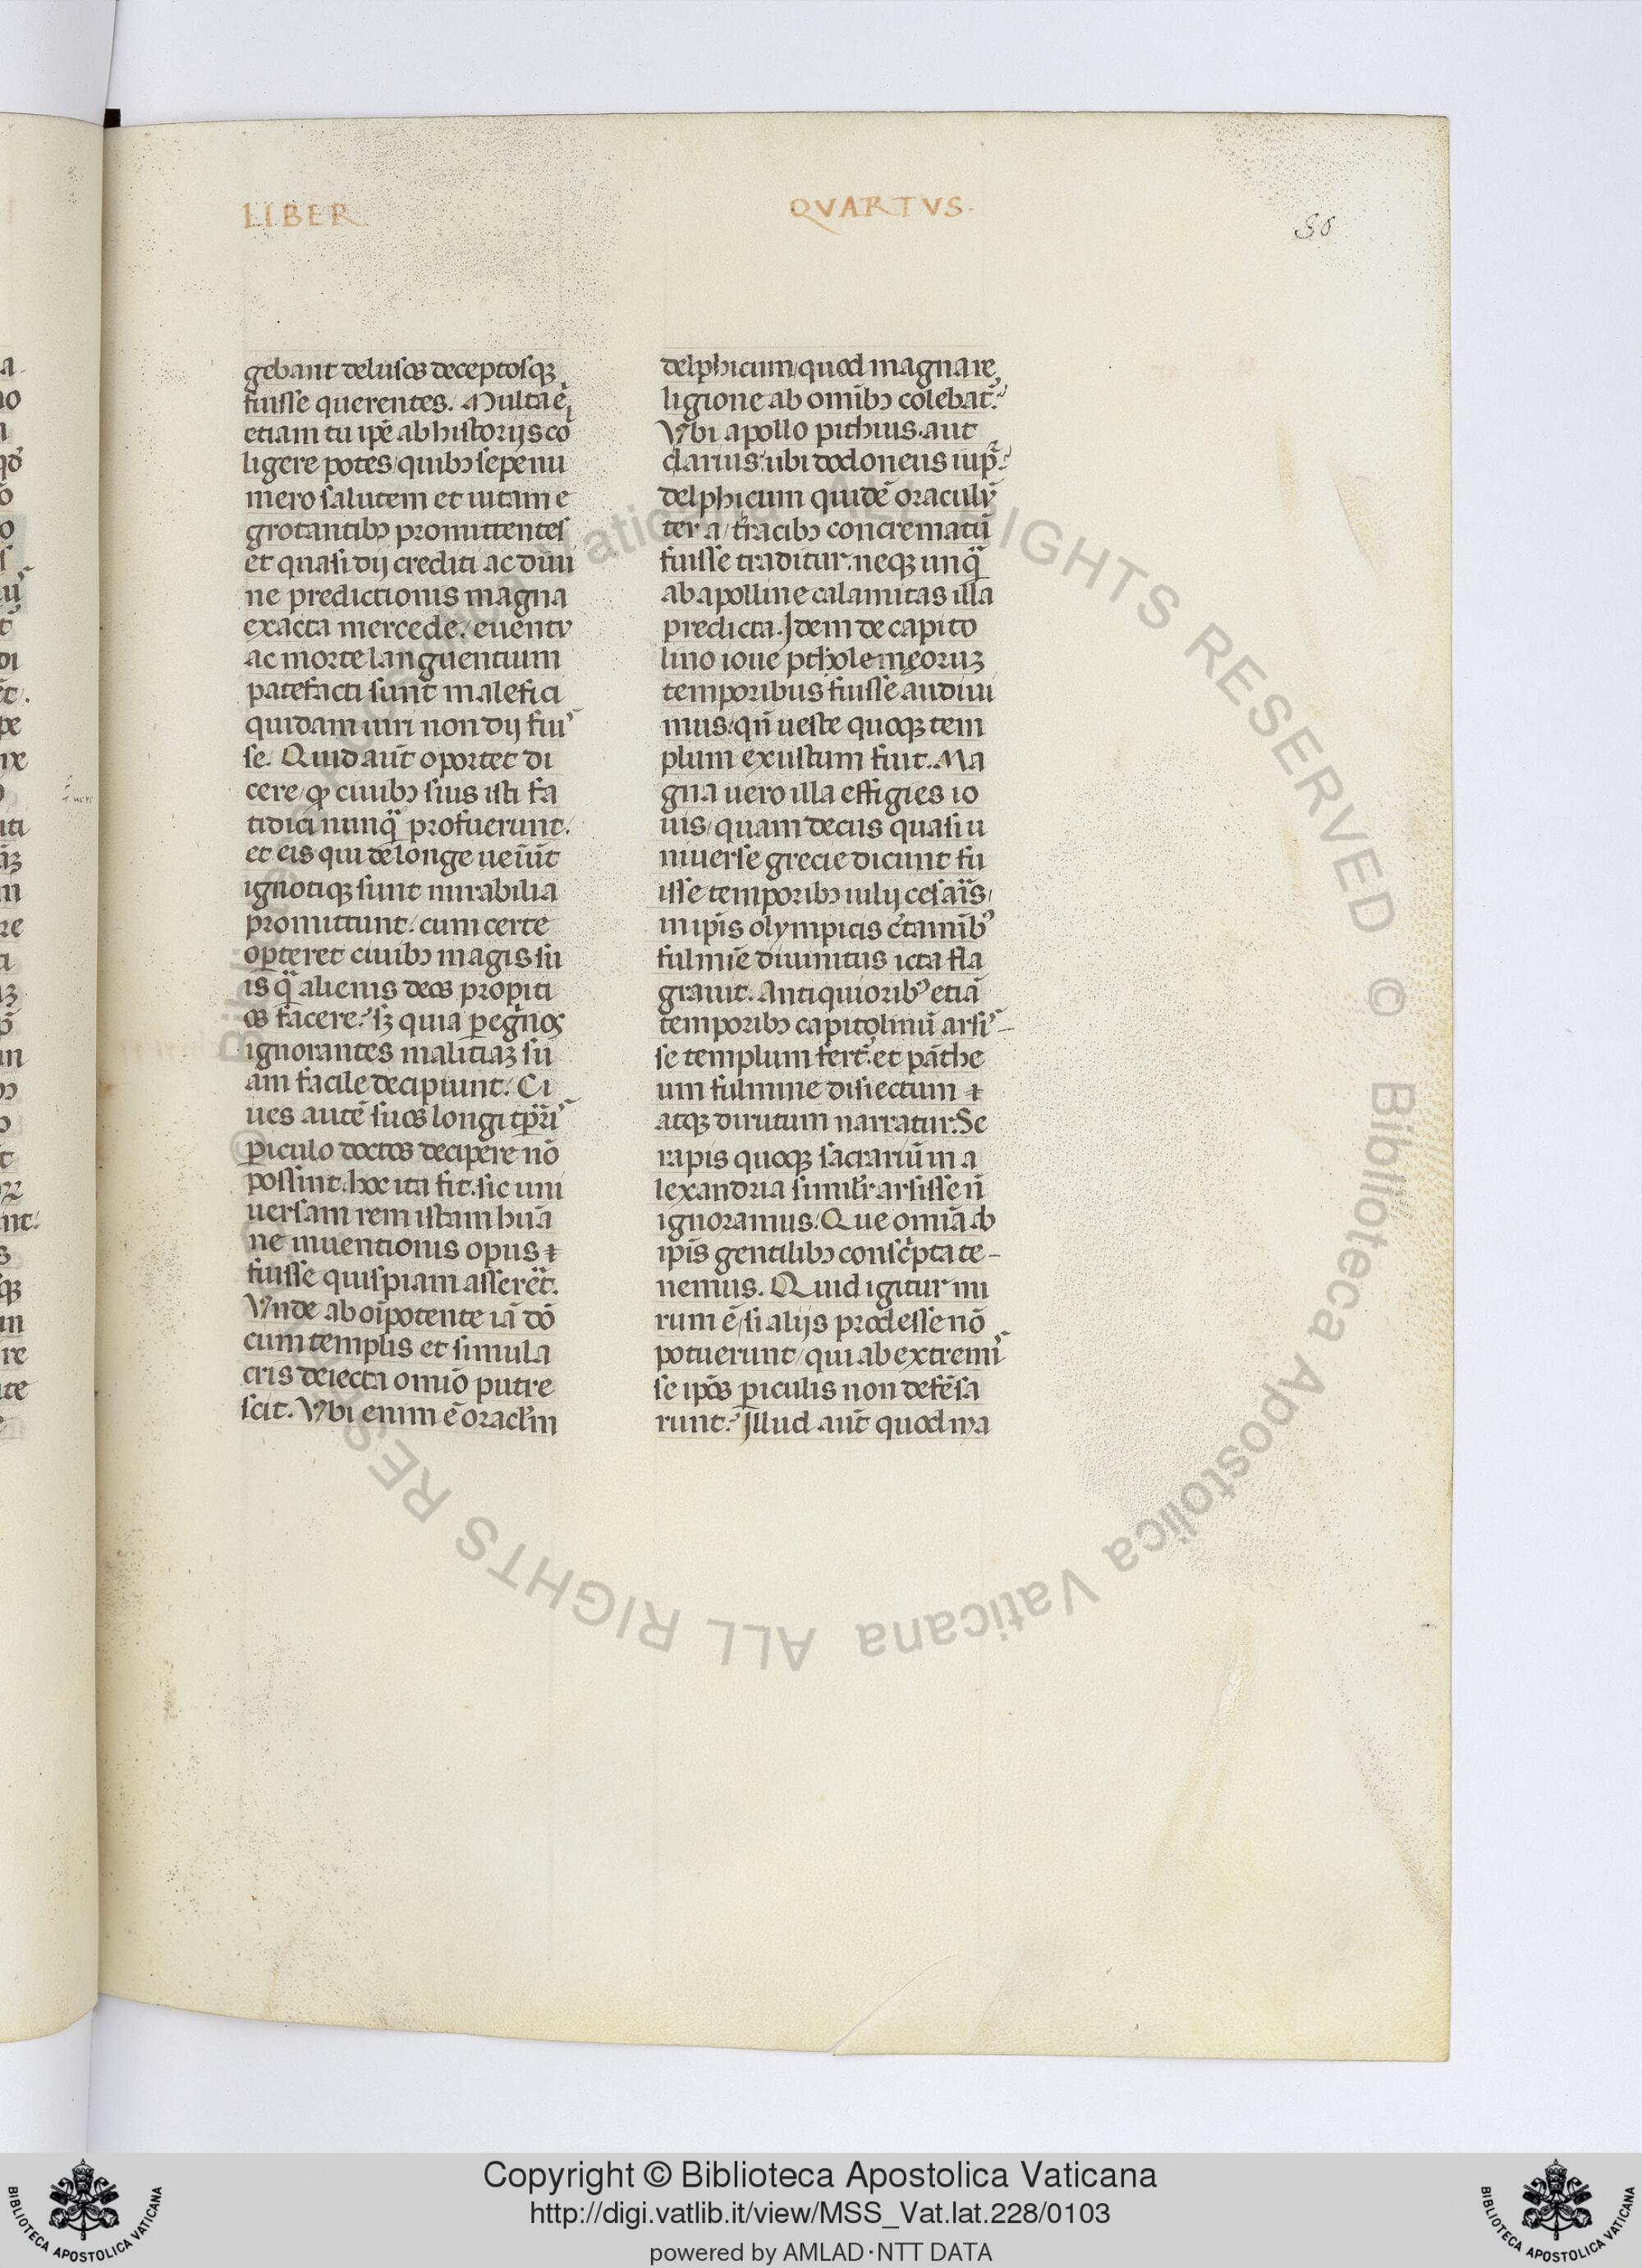 LIBER
QVARTVS.
gebant delusos deceptosqꝫ
fuisse querentes. Multa ẽ
etiam tu ip̃e ab historijs co
ligere potes/quibꝰ sepenu
mero salutem et uitam e
grotantibꝰ promittentes
et quasi dij crediti ac diui
ne predictionis magna
exacta mercede/euentu
ac morte languentium
patefacti sunt malefici
quidam uiri non dij fuis
se. Quid aũt oportet di
cere/ꝙ ciuibꝰ suis isti fa
tidici nunq̃ profuerunt/
et eis qui de longe ueniũt
ignotiqꝫ sunt mirabilia
promittunt/cum certe
oꝑteret ciuibꝰ magis su
is q̃ alienis deos propiti
os facere. sꝫ quia ꝑegrinos
ignorantes malitiaꝫ su
am facile decipiunt. Ci
ues autẽ suos longi tꝑis
ꝑiculo doctos decipere nõ
possint. hoc ita fit. sic uni
uersam rem istam huã
ne inuentionis opus ⁊
fuisse quispiam assereret.
Vnde ab oĩpotente iã dõ
cum templis et simula
cris deiecta omĩo putre
scit. Vbi enim ẽ oracl'm
delphicum/quod magna re
ligione ab omĩbꝰ colebat̃.
Vbi apollo pithius. aut
clarius: ubi dodoneus iup̃.
delphicum quidẽ oraculũ
ter a/tracibꝰ concrematũ
fuisse traditur. neqꝫ unq̃
ab apolline calamitas illa
predicta. Idem de capito
lino ioue ptholemęoruꝫ
temporibus fuisse audiui
mus/qñ ueste quoqꝫ tem
plum exustum fuit. Ma
gna uero illa effigies io
uis/quam decus quasi u
niuerse grecie dicunt fu
isse temporibꝰ iulij cesaris/
in ip̃is olympicis c̃tamĩbꝰ
fulmĩe diuinitus icta fla
grauit. Antiquioribꝰ etiã
temporibꝰ capitolinũ arsi-
se templum fert̃. et pãthe
um fulmine disiectum ⁊
atqꝫ dirutum narratur. Se
rapis quoqꝫ sacrariũ in a
lexandria simil'r arsisse ñ
ignoramus. Que omĩa ab
ip̃is gentilibꝰ conscͥpta te-
nemus. Quid igitur mi
rum ẽ/si alijs prodesse nõ
potuerunt/qui ab extremis
se ip̃os ꝑiculis non defẽsa
runt. Illud aũt quod ma
Copyright © Biblioteca Apostolica Vaticana
http://digi.vatlib.it/view/MSS_Vat.lat.228/0103
powered by AMLAD·NTT DATA
BIBLIOTECA APOSTOLICA VATICANA
BIBLIOTECA APOSTOLICA VATICANA